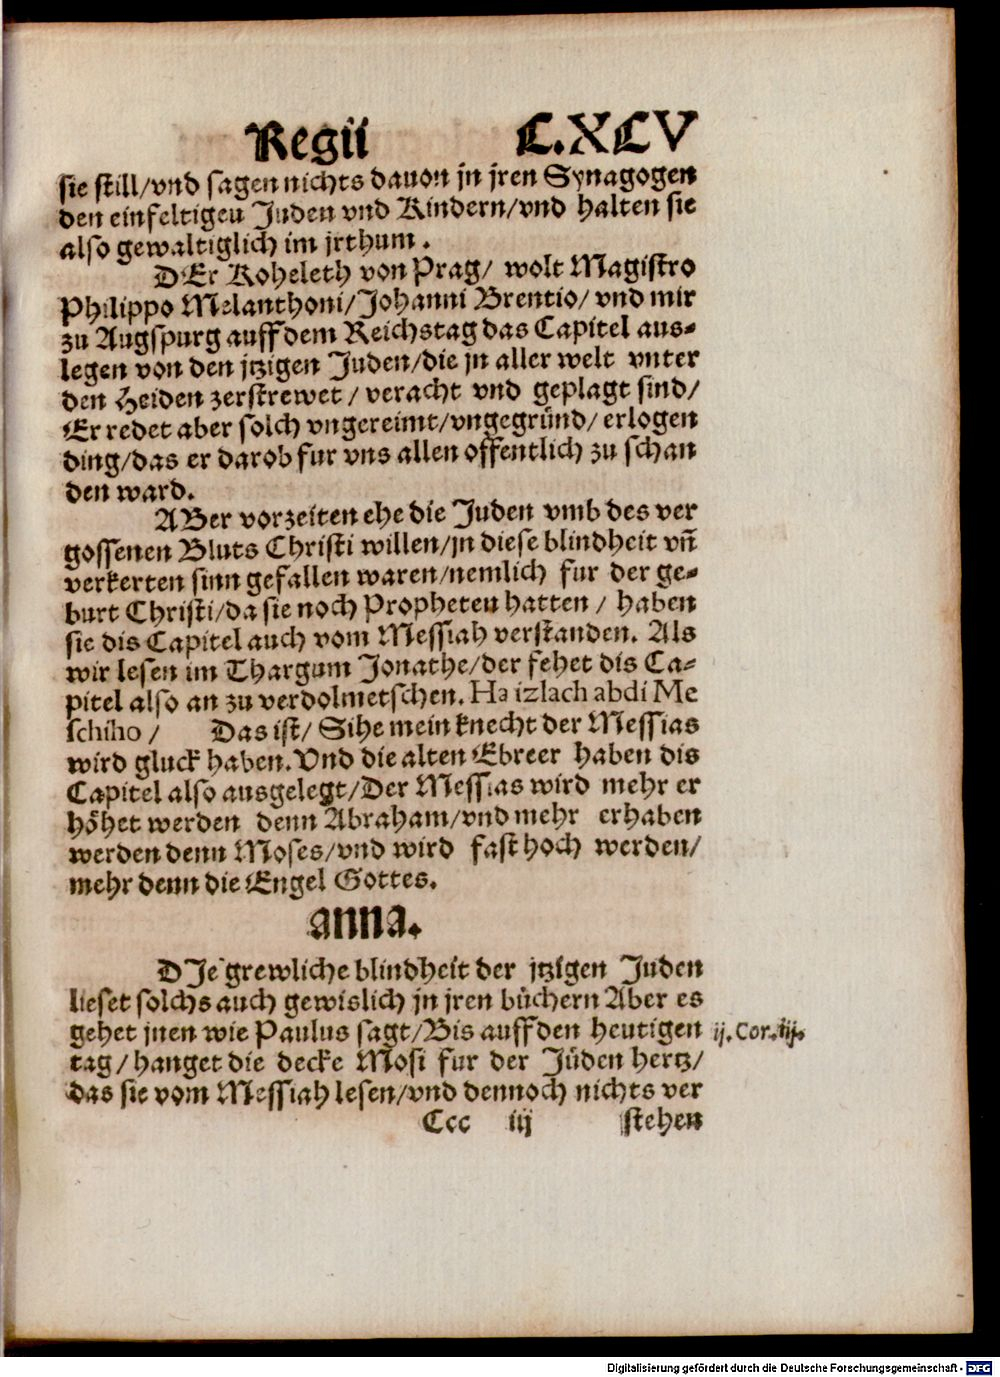 Regii C.XCV
sie still/vnd sagen nichts dauon jn jren Synagogen
den einfeltigen Juden vnd Kindern/vnd halten sie
also gewaltiglich im jrthum.
DEr Koheleth von Prag/ wolt Magistro
Philippo Melanthoni/Johanni Brentio/ vnd mir
zu Augspurg auff dem Reichstag das Capitel aus-
legen von den jtzigen Juden/die jn aller welt vnter
den Heiden zerstrewet/ veracht vnd geplagt sind/
Er redet aber solch vngereimt/vngegründ/ erlogen
ding/das er darob fur vns allen offentlich zu schan
den ward.
ABer vorzeiten ehe die Juden vmb des ver
gossenen Bluts Christi willen/jn diese blindheit vñ
verkerten sinn gefallen waren/nemlich fur der ge-
burt Christi/da sie noch Propheten hatten/ haben
sie dis Capitel auch vom Messiah verstanden. Als
wir lesen im Thargum Jonathe/der fehet dis Ca-
pitel also an zu verdolmetschen. Ha izlach abdi Me
schiho/ Das ist/ Sihe mein knecht der Messias
wird gluck haben. Vnd die alten Ebreer haben dis
Capitel also ausgelegt/Der Messias wird mehr er
höhet werden denn Abraham/vnd mehr erhaben
werden denn Moses/vnd wird fast hoch werden/
mehr denn die Engel Gottes.
anna.
DJe grewliche blindheit der jtzigen Juden
lieset solchs auch gewislich jn jren büchern Aber es
gehet jnen wie Paulus sagt/Bis auff den heutigen ij. Cor. iij.
tag/ hanget die decke Mosi fur der Jüden hertz/
das sie vom Messiah lesen/vnd dennoch nichts ver
Ccc iij stehen
Digitalisierung gefördert durch die Deutsche Forschungsgemeinschaft - DFG